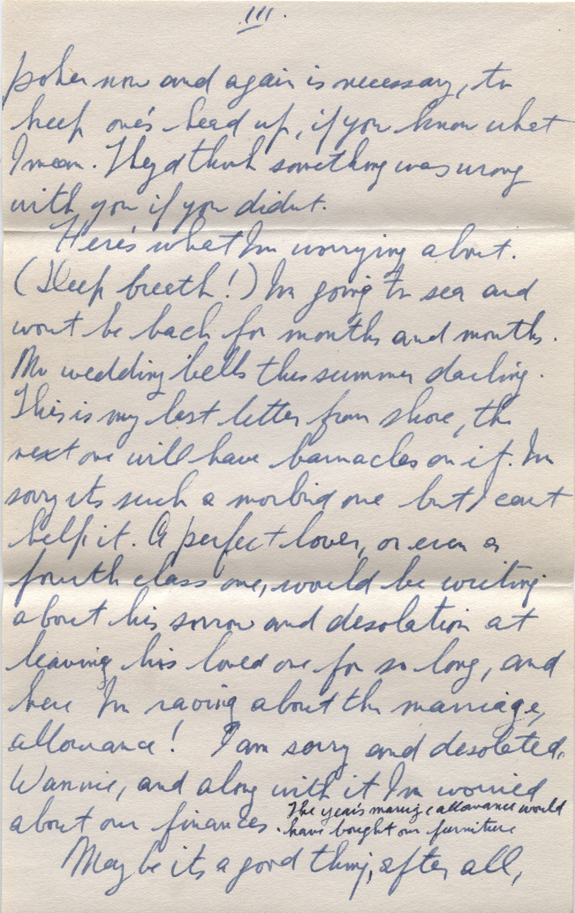 III.
poker now and again is necessary, to
keep one's head up, if you know what
I mean. They'd think something was wrong
with you if you didn't.
Here's what I'm worrying about.
(Deep breath!) I'm going to sea and
wont be back for months and months.
No wedding bells this summer darling.
This is my last letter from shore, the
next one will have barnacles on it. I'm
sorry its such a morbid one but I cant
help it. A perfect lover, or even a
fourth class one, would be writing
about his sorrow and desolation at
leaving his loved one for so long, and
here I'm raving about the marriage
allowance! I am sorry and desolated,
Wannie, and along with it I'm worried
about our finances. The year's marriage allowance would
have bought our furniture
Maybe its a good thing, after all,